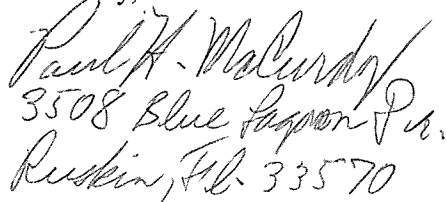 Paul H. McCurdy
3508 Blue Lagoon Dr.
Ruskin, Fl. 33570